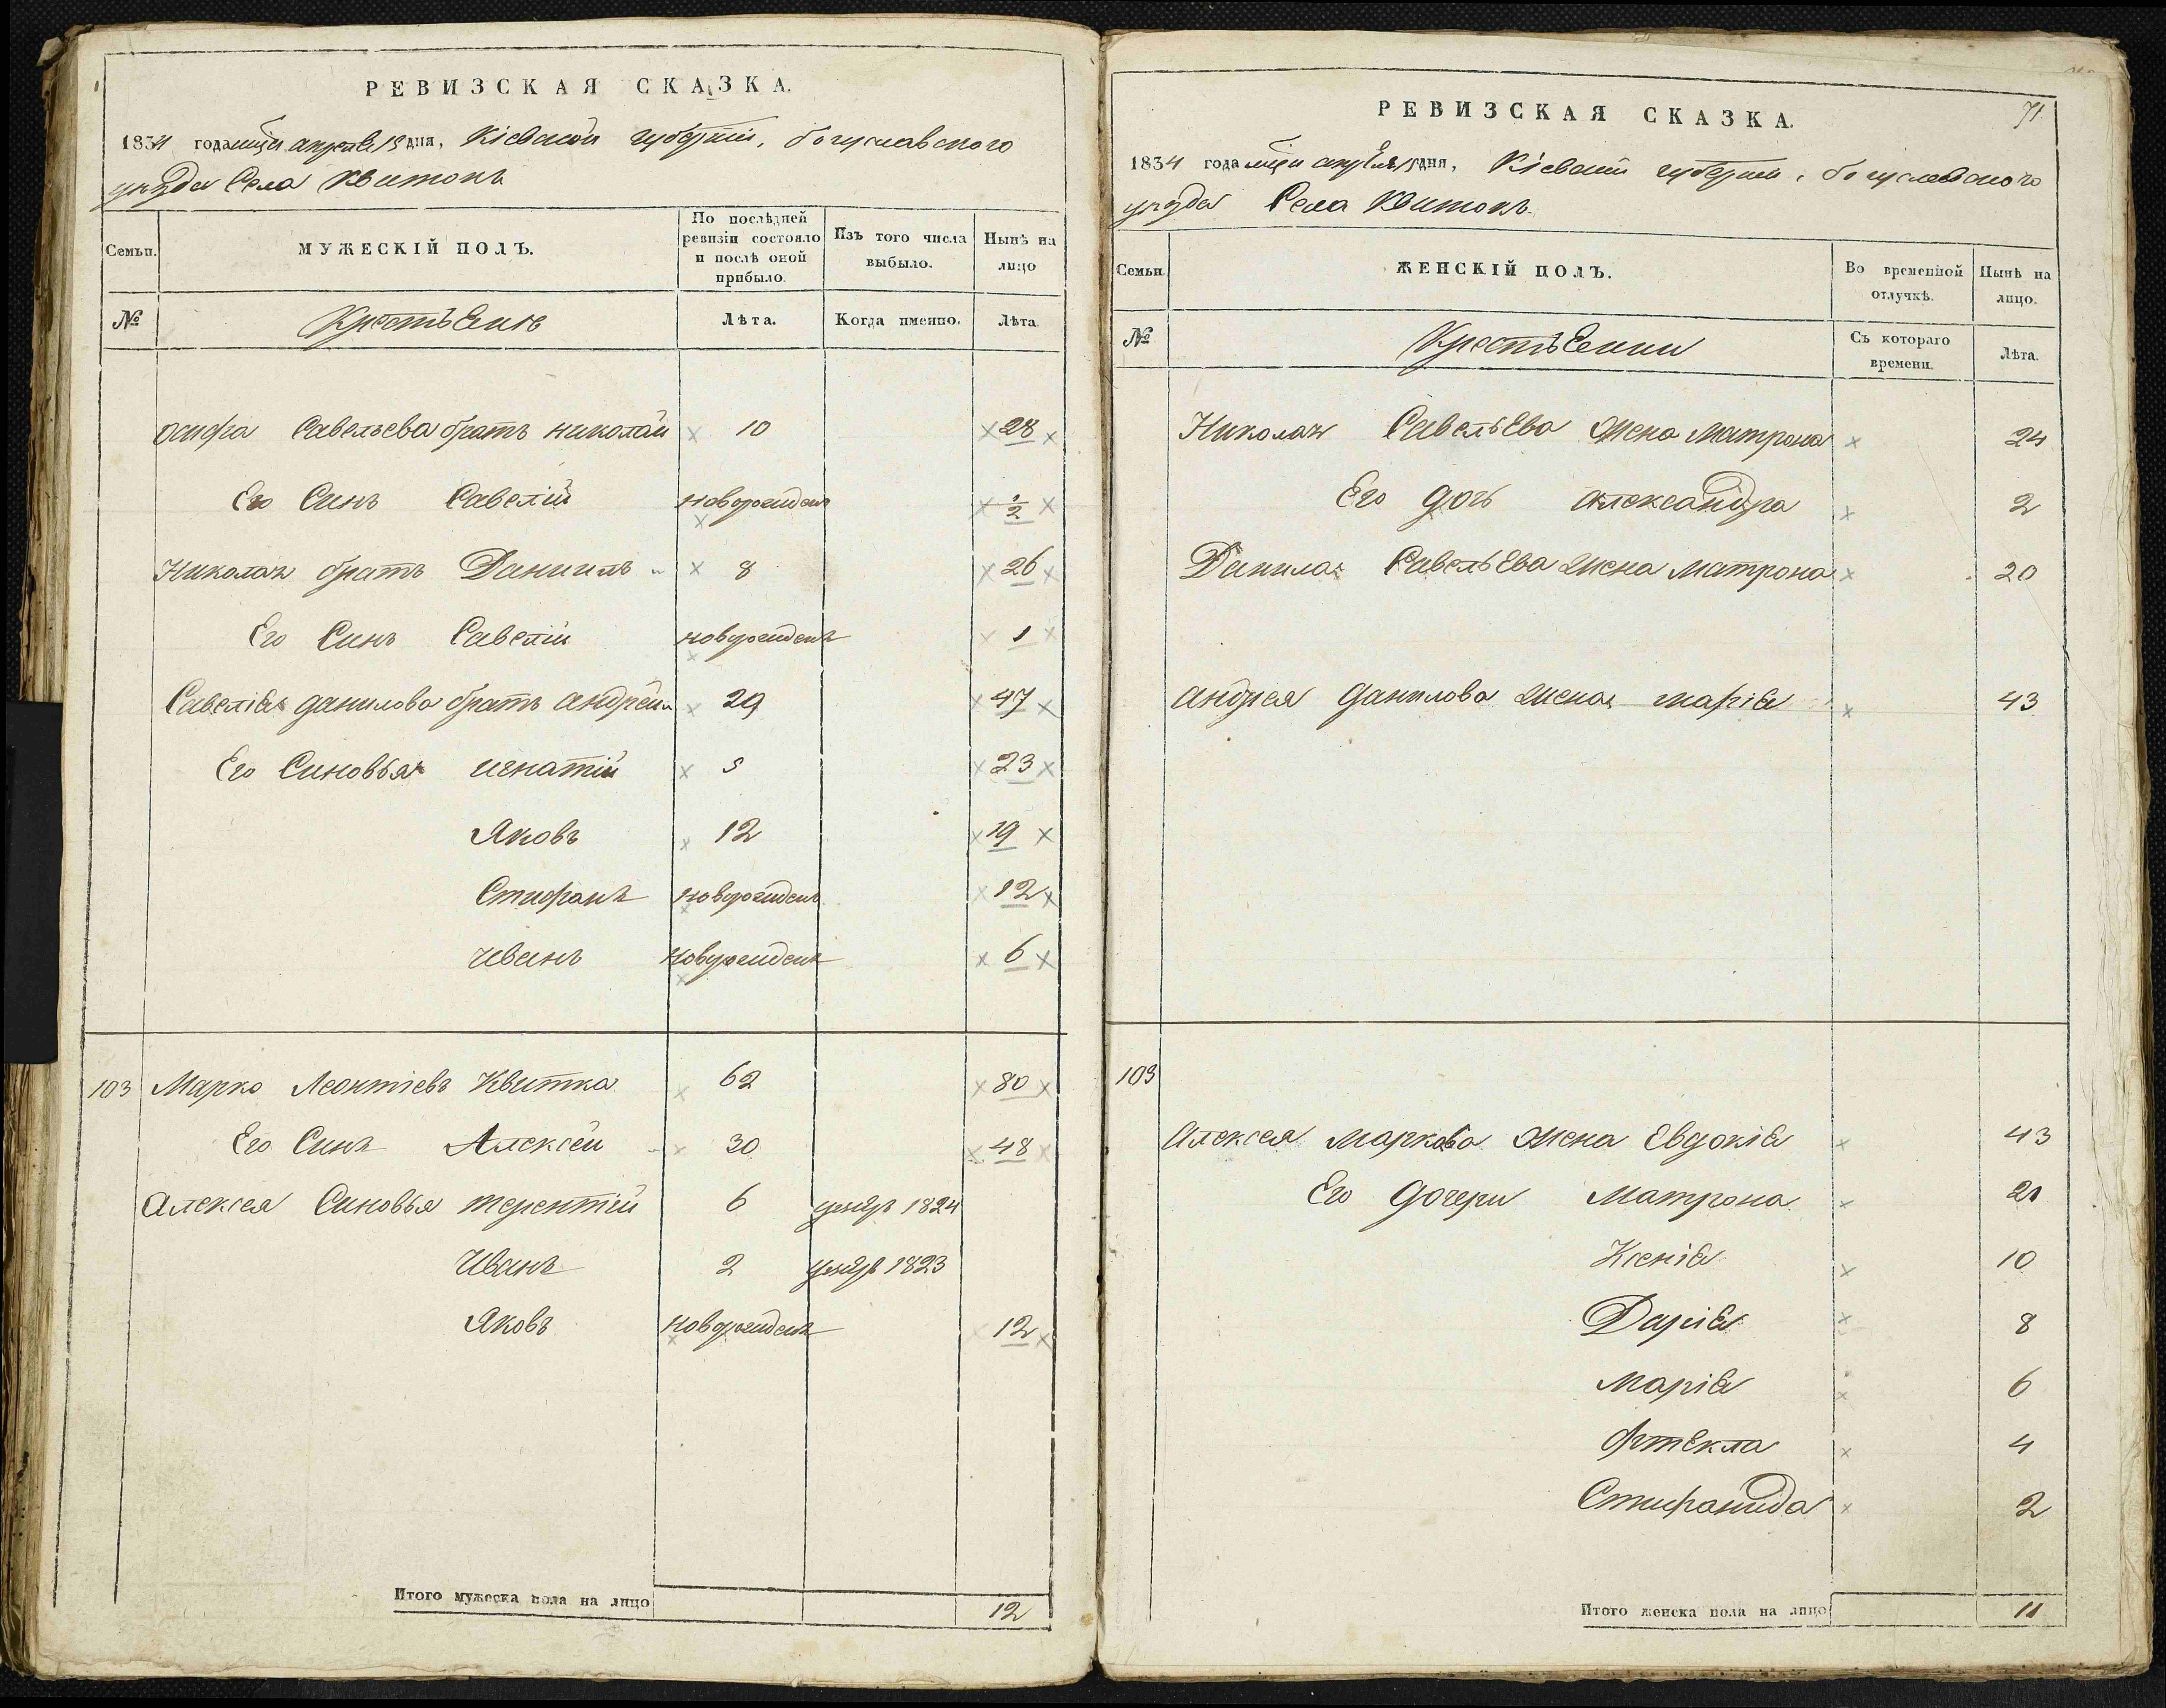 РЕВИЗСКАЯ СКАЗКА.
1834 года мця апреля 15 дня, Кіевской губерніи, богуславского
уезда Села Квитокъ
Семьи.
МУЖЕСКІЙ ПОЛЪ.
По послѣдней ревизіи состояло и послѣ оной прибыло.
Изъ того числа выбыло.
Нынѣ на лицо
№
Крестьене
Лѣта.
Когда именно.
Лѣта.
осифа Савельева братъ николай 10 28
Его Синъ Савелій новорожденъ ½
Николая братъ Даниилъ 8 26
Его Синъ Савелій новорожденъ 1
Савелія данилова братъ андрей 29 47
Его Синовья игнатій 5 23
Яковъ 12 19
Стифанъ новорожденъ 12
иванъ новорожденъ 6
103 Марко Леонтіевъ Квитка 62 80
Его Синъ Алексей 30 48
Алексея Синовья терентій 6 умеръ 1824
Иванъ 2 умеръ 1823
Яковъ новорожденъ 12
Итого мужеска пола на лицо 12
71
РЕВИЗСКАЯ СКАЗКА.
1834 года мця апреля 15 дня, Кіевской губерніи, богуславского
уезда Села Квитокъ.
Семьи.
ЖЕНСКІЙ ПОЛЪ.
Во временной отлучкѣ.
Нынѣ на лицо.
№
Крестьенки
Съ котораго времени.
Лѣта.
Николая Савельева жена матрона 24
Его дочь александра 2
Данила Савельева жена матрона 20
андрея данилова жена марія 43
103
Алексея маркова жена Евдокія 43
Его дочери Матрона 21
Ксенія 10
Дарія 8
Марія 6
Фтекла 4
Стифанида 2
Итого женска пола на лицо 11